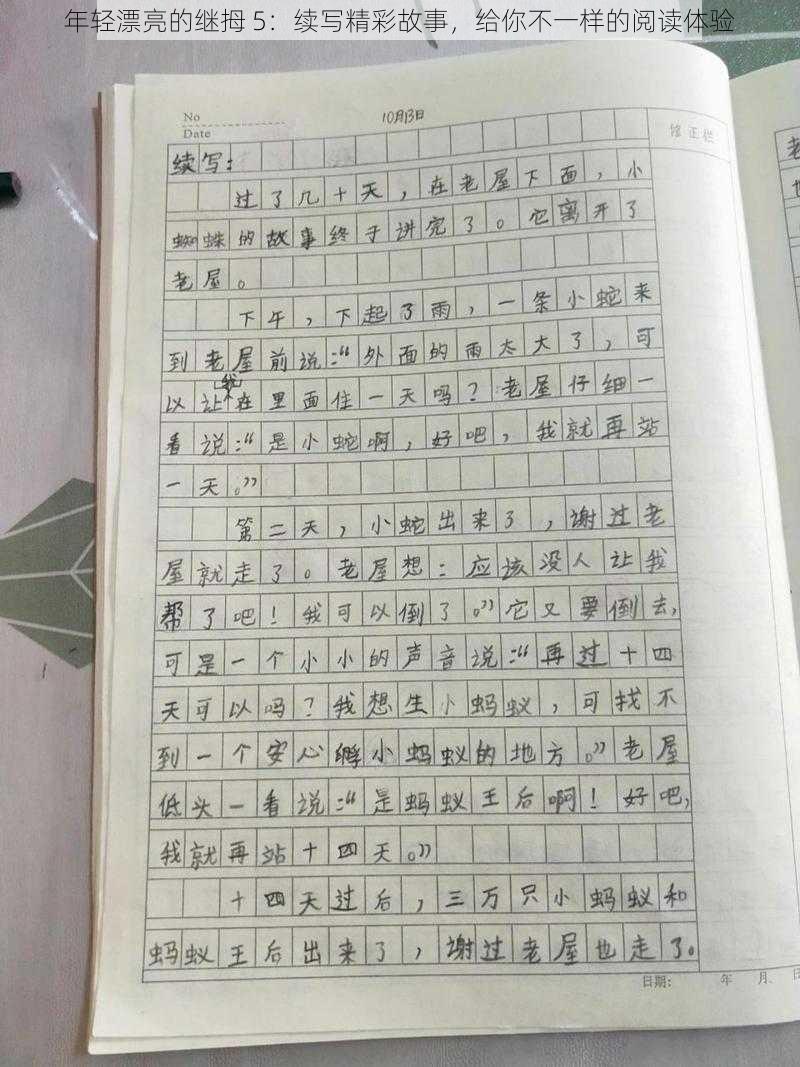 年轻漂亮的继拇 5：续写精彩故事，给你不一样的阅读体验
No
10月13日
Date
修正栏
续写：
过了几十天，在老屋下面，小
蜘蛛的故事终于讲完了。它离开了
老屋。
下午，下起了雨，一条小蛇来
到老屋前说：“外面的雨太大了，可
以让我在里面住一天吗？老屋仔细一
看说：“是小蛇啊，好吧，我就再站
一天。”
第二天，小蛇出来了，谢过老
屋就走了。老屋想：应该没人让我
帮了吧！我可以倒了。”它又要倒去，
可是一个小小的声音说：“再过十四
天可以吗？我想生小蚂蚁，可找不
到一个安心孵小蚂蚁的地方。”老屋
低头一看说：“是蚂蚁王后啊！好吧，
我就再站十四天。”
十四天过后，三万只小蚂蚁和
蚂蚁王后出来了，谢过老屋也走了。
日期： 年 月 日
老